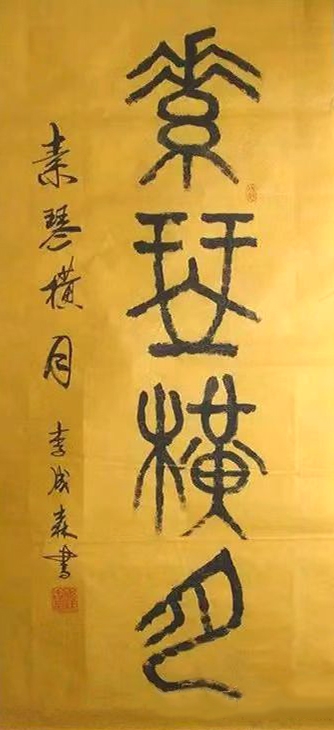 素琴橫月
素琴橫月 李成森書